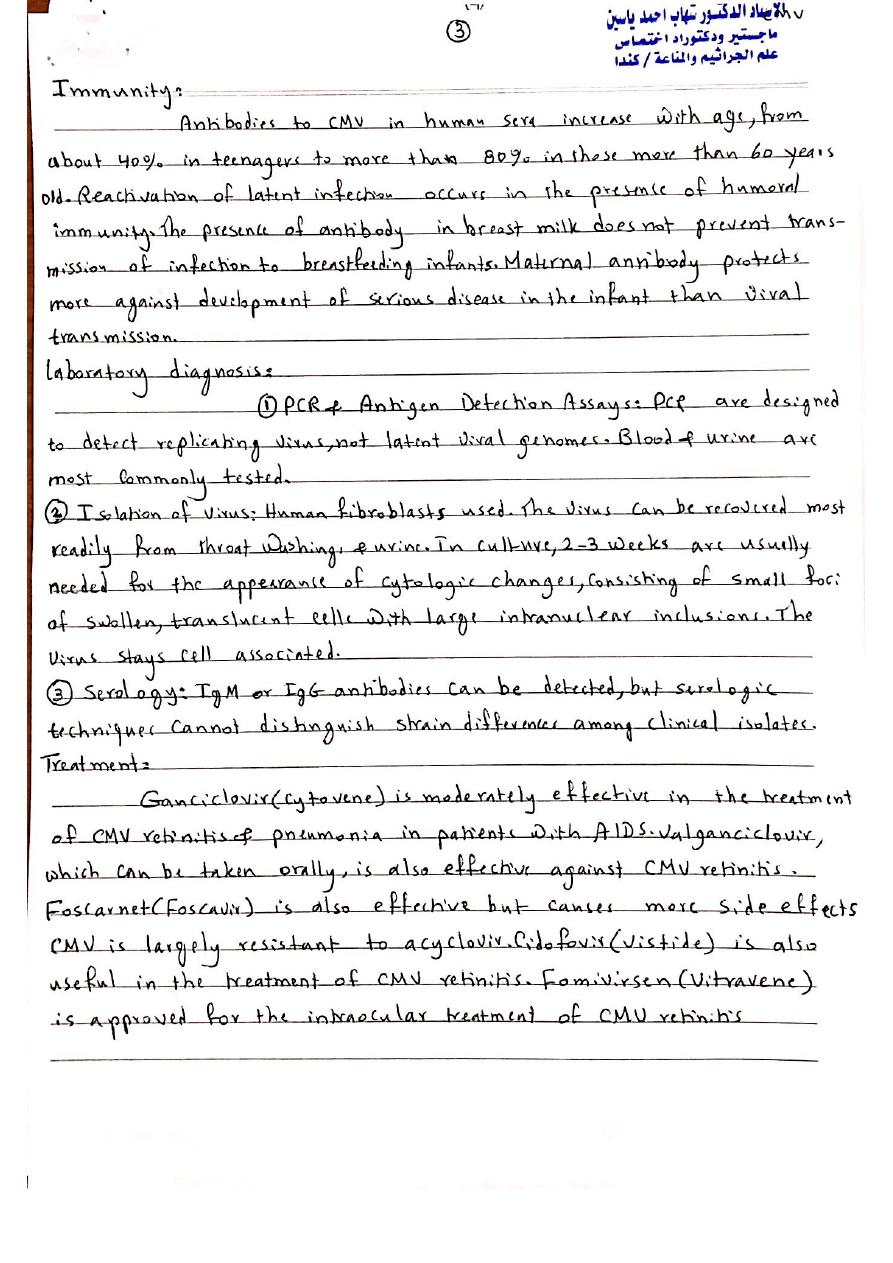 الاستاذ الدكتور شهاب احمد ياسين
ماجستير ودكتوراه اختصاص
علم الجراثيم والمناعة / كندا
3
Immunity:
Antibodies to CMV in human sera increase with age, from
about 40% in teenagers to more than 80% in those more than 60 years
old. Reactivation of latent infection occurs in the presence of humoral
immunity. The presence of antibody in breast milk does not prevent trans-
mission of infection to breastfeeding infants. Maternal annibody protects
more against development of serious disease in the infant than viral
transmission.
Laboratory diagnosis:
① PCR & Antigen Detection Assays: PCR are designed
to detect replicating virus, not latent viral genomes. Blood & urine are
most commonly tested.
② Isolation of virus: Human fibroblasts used. The virus can be recovered most
readily from throat washings & urine. In culture, 2-3 weeks are usually
needed for the appearance of cytologic changes, consisting of small foci
of swollen, translucent cells with large intranuclear inclusions. The
virus stays cell associated.
③ Serology: IgM or IgG antibodies can be detected, but serologic
techniques cannot distinguish strain differences among clinical isolates.
Treatment:
Ganciclovir (cytovene) is moderately effective in the treatment
of CMV retinitis & pneumonia in patients with AIDS. Valganciclovir,
which can be taken orally, is also effective against CMV retinitis.
Foscarnet (Foscavir) is also effective but causes more side effects
CMV is largely resistant to acyclovir. Cidofovir (Vistide) is also
useful in the treatment of CMV retinitis. Fomivirsen (Vitravene)
is approved for the intraocular treatment of CMV retinitis